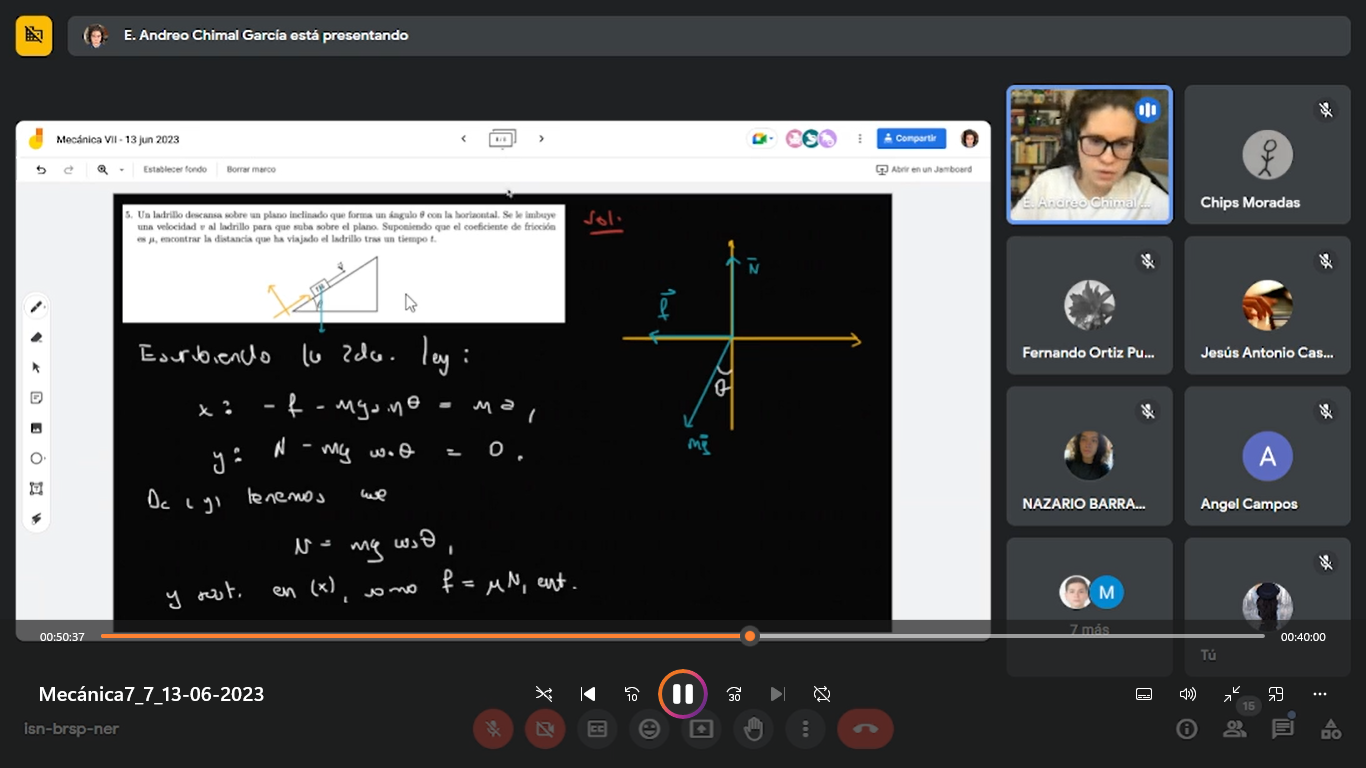 E. Andreo Chimal García está presentando
Mecánica VII - 13 jun 2023
Compartir
Establecer fondo
Borrar marco
Abrir en un Jamboard
5. Un ladrillo descansa sobre un plano inclinado que forma un ángulo θ con la horizontal. Se le imbuye
una velocidad v al ladrillo para que suba sobre el plano. Suponiendo que el coeficiente de fricción
es μ, encontrar la distancia que ha viajado el ladrillo tras un tiempo t.
Sol.
N
f
θ
mg
Escribiendo la 2da. ley:
x: - f - mg sinθ = ma,
y: N - mg cosθ = 0.
De (y) tenemos que
N = mg cosθ,
y sust. en (x), como f = μN, ent.
E. Andreo Chimal ...
Chips Moradas
Fernando Ortiz Pu...
Jesús Antonio Cas...
NAZARIO BARRA...
A
Angel Campos
M
7 más
Tú
00:50:37
00:40:00
Mecánica7_7_13-06-2023
10
30
isn-brsp-ner
15